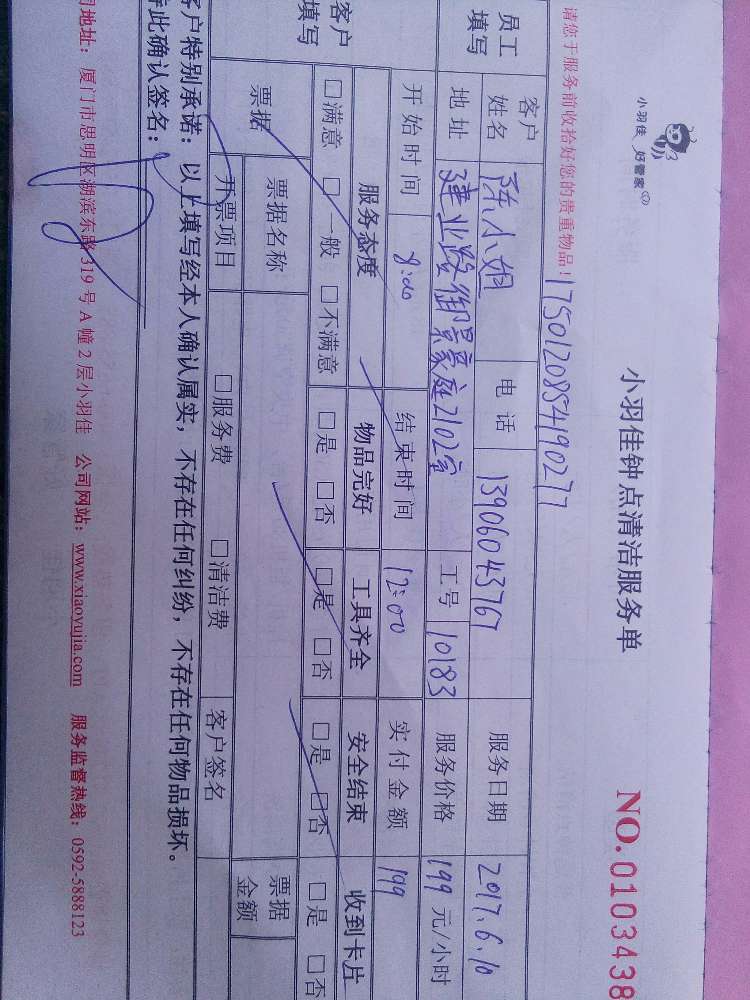 小羽佳 好管家
小羽佳钟点清洁服务单
NO.0103438
请您于服务前收拾好您的贵重物品!
1750120854190277
员工填写
客户姓名 陈小姐 电话 13906043767 服务日期 2017.6.10
地址 建业路御景豪庭2102室 工号 10183 服务价格 199 元/小时
客户填写
开始时间 8:00 结束时间 12:00 实付金额 199
服务态度 物品完好 工具齐全 安全结束 收到卡片
□满意 □一般 □不满意 □是 □否 □是 □否 □是 □否 □是 □否
票据 票据名称 票据金额
开票项目 □服务费 □清洁费 客户签名
客户特别承诺:以上填写经本人确认属实,不存在任何纠纷,不存在任何物品损坏。
此确认签名:
地址:厦门市思明区湖滨东路319号A幢2层小羽佳 公司网站:www.xiaoyujia.com 服务监督热线:0592-5888123